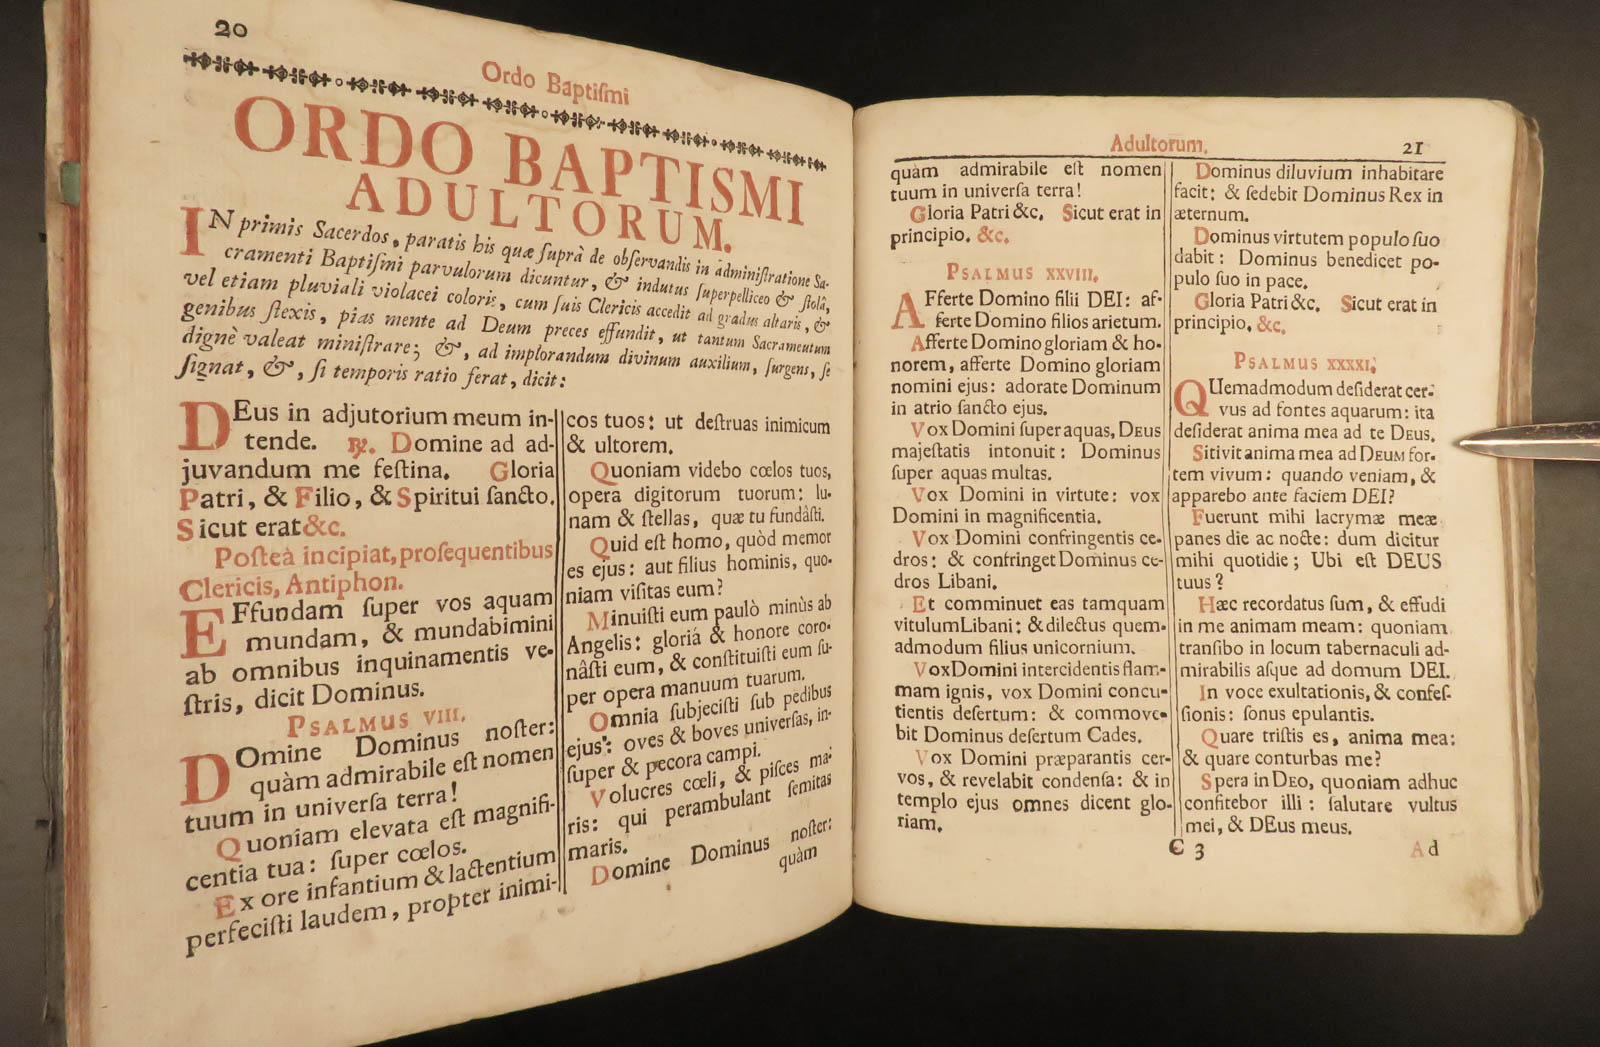 20
Ordo Baptiſmi
ORDO BAPTISMI
ADULTORUM.
IN primis Sacerdos, paratis his quæ ſuprà de obſervandis in adminiſtratione Sa-
cramenti Baptiſmi parvulorum dicuntur, & indutus ſuperpelliceo & ſtolâ,
vel etiam pluviali violacei coloris, cum ſuis Clericis accedit ad gradus altaris, &
genibus flexis, pias mente ad Deum preces effundit, ut tantum Sacramentum
dignè valeat miniſtrare; &, ad implorandum divinum auxilium, ſurgens, ſe
ſignat, &, ſi temporis ratio ferat, dicit:
DEus in adjutorium meum in-
tende. ℟. Domine ad ad-
juvandum me feſtina. Gloria
Patri, & Filio, & Spiritui ſancto.
Sicut erat &c.
Poſteà incipiat, proſequentibus
Clericis, Antiphon.
EFfundam ſuper vos aquam
mundam, & mundabimini
ab omnibus inquinamentis ve-
ſtris, dicit Dominus.
PSALMUS VIII.
DOmine Dominus noſter:
quàm admirabile eſt nomen
tuum in univerſa terra!
Quoniam elevata eſt magnifi-
centia tua: ſuper cœlos.
Ex ore infantium & lactentium
perfeciſti laudem, propter inimi-
cos tuos: ut deſtruas inimicum
& ultorem.
Quoniam videbo cœlos tuos,
opera digitorum tuorum: lu-
nam & ſtellas, quæ tu fundâſti.
Quid eſt homo, quòd memor
es ejus: aut filius hominis, quo-
niam viſitas eum?
Minuiſti eum paulò minùs ab
Angelis: gloriâ & honore coro-
nâſti eum, & conſtituiſti eum ſu-
per opera manuum tuarum.
Omnia ſubjeciſti ſub pedibus
ejus: oves & boves univerſas, in-
ſuper & pecora campi.
Volucres cœli, & piſces ma-
ris: qui perambulant ſemitas
maris.
Domine Dominus noſter:
quàm
Adultorum.
21
quàm admirabile eſt nomen
tuum in univerſa terra!
Gloria Patri &c. Sicut erat in
principio. &c.
PSALMUS XXVIII.
AFferte Domino filii DEI: af-
ferte Domino filios arietum.
Afferte Domino gloriam & ho-
norem, afferte Domino gloriam
nomini ejus: adorate Dominum
in atrio ſancto ejus.
Vox Domini ſuper aquas, DEUS
majeſtatis intonuit: Dominus
ſuper aquas multas.
Vox Domini in virtute: vox
Domini in magnificentia.
Vox Domini confringentis ce-
dros: & confringet Dominus ce-
dros Libani.
Et comminuet eas tamquam
vitulum Libani: & dilectus quem-
admodum filius unicornium.
Vox Domini intercidentis flam-
mam ignis, vox Domini concu-
tientis deſertum: & commove-
bit Dominus deſertum Cades.
Vox Domini præparantis cer-
vos, & revelabit condenſa: & in
templo ejus omnes dicent glo-
riam.
Dominus diluvium inhabitare
facit: & ſedebit Dominus Rex in
æternum.
Dominus virtutem populo ſuo
dabit: Dominus benedicet po-
pulo ſuo in pace.
Gloria Patri &c. Sicut erat in
principio, &c.
PSALMUS XXXXI.
QUemadmodum deſiderat cer-
vus ad fontes aquarum: ita
deſiderat anima mea ad te DEUS.
Sitivit anima mea ad DEUM for-
tem vivum: quando veniam, &
apparebo ante faciem DEI?
Fuerunt mihi lacrymæ meæ
panes die ac nocte: dum dicitur
mihi quotidie; Ubi eſt DEUS
tuus?
Hæc recordatus ſum, & effudi
in me animam meam: quoniam
tranſibo in locum tabernaculi ad-
mirabilis aſque ad domum DEI.
In voce exultationis, & confeſ-
ſionis: ſonus epulantis.
Quare triſtis es, anima mea:
& quare conturbas me?
Spera in DEO, quoniam adhuc
confitebor illi: ſalutare vultus
mei, & DEus meus.
C 3
Ad